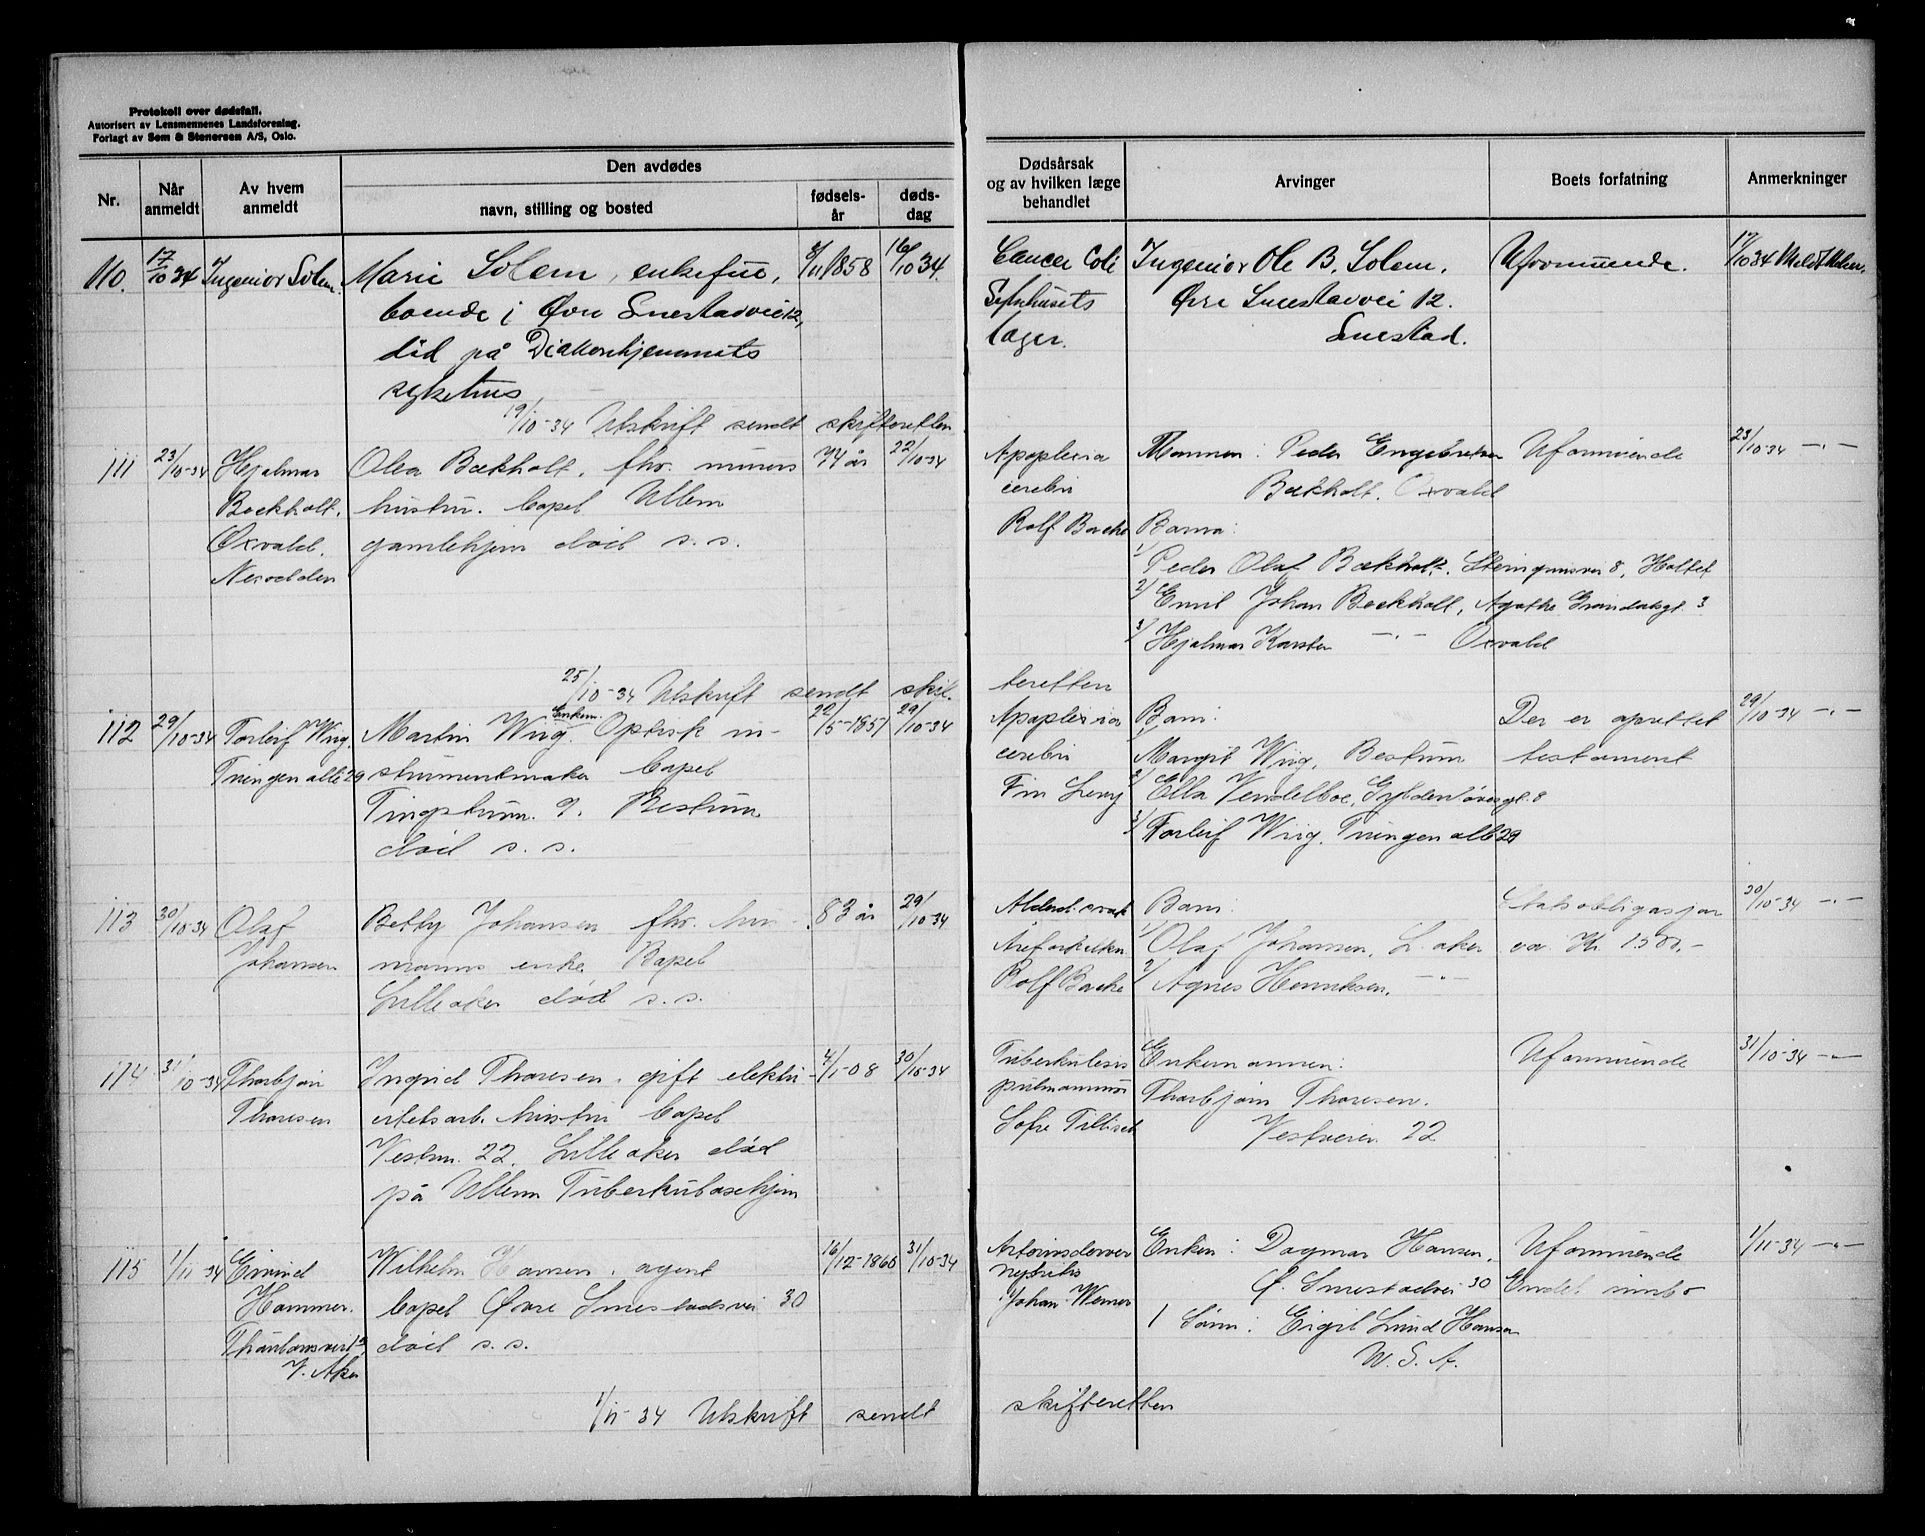 Protokoll over dødsfall.
Autorisert av Lensmennenes Landsforening.
Forlagt av Sem & Stenersen A/S, Oslo.
Nr.
Når anmeldt
Av hvem anmeldt
Den avdødes
navn, stilling og bosted
fødsels-år
døds-dag
Dødsårsak og av hvilken læge behandlet
Arvinger
Boets forfatning
Anmerkninger
110. 17/10 34 Ingeniør Solem. Marie Solem, enkefrue, 8/11 1858 16/10 34. Cancer Coli Ingeniør Ole B. Solem. Uformuende. 17/10 34 Meldt
boende i Øvre Smestadvei 12, Sykehusets Øvre Smestadvei 12.
död på Diakonhjemmets læger. Smestad.
sykehus
19/10-34 Utskrift sendt skifteretten
111 23/10-34 Hjalmar Olea Bækholt, fhv. murers 77 år 22/10-34 Apoplexia Mannen: Peder Engebretsen Uformuende 23/10-34 -"-
Bækholt. hustru. bopel Ullern cerebri Bækholt. Oxvald
Oxvald. gamlehjem död s. s. Rolf Backe Barna:
Nesodden 1/ Peder Olaf Bækholt. 8, Holtet
2/ Emil Johan Bækholt, Agathe Grøndalsgt. 3
3/ Hjalmar Karsten -"- Oxvald
25/10-34 Utskrift sendt skif- teretten
112 29/10-34 Torleif Wiig. Martin Wiig. Enkem. Optisk in- 22/5-1851 29/10-34 Apoplexia Barn: Der er oprettet 29/10-34 -"-
Tuengen allé 29 strumentmaker bopel cerebri 1/ Margit Wiig, Bestum testament
9. Bestum Fin 2/ Ella Vendelboe, Gyldenløvesgt. 8
död s. s. 3/ Torleif Wiig. Tuengen allé 29
113 30/10-34 Olaf Betty Johansen fhv. 83 år 29/10-34 Barn: Statsobligasjon 30/10-34 -"-
Johansen manns enke Bopel 1/ Olaf Johansen, L. aker ca. Kr. 1500.-
Lilleaker död s. s. Rolf Backe 2/ Agnes Henriksen. -"-
114 31/10-34 Thorbjørn Ingrid Thoresen. gift elektri- 4/1-08 30/10-34 Tuberkulosis Enkemannen: Uformuende 31/10-34 -"-
Thoresen citetsarb. hustru bopel pulmonum Thorbjørn Thoresen.
Vestvn. 22. Lilleaker död Vestveien 22
på Ullern Tuberkulosehjem
115 1/11-34 Eivind Wilhelm Hansen. agent 16/12-1860 31/10-34 Enken: Dagmar Hansen. Uformuende 1/11-34 -"-
Hammer. bopel Øvre Smestadsvei 30 Ø. Smestadvei 30 Endel innbo
död s. s. Johan Werner 1 Sønn: Eigil Lund Hansen
V. Aker U. S. A.
1/11-34 Utskrift sendt skifteretten